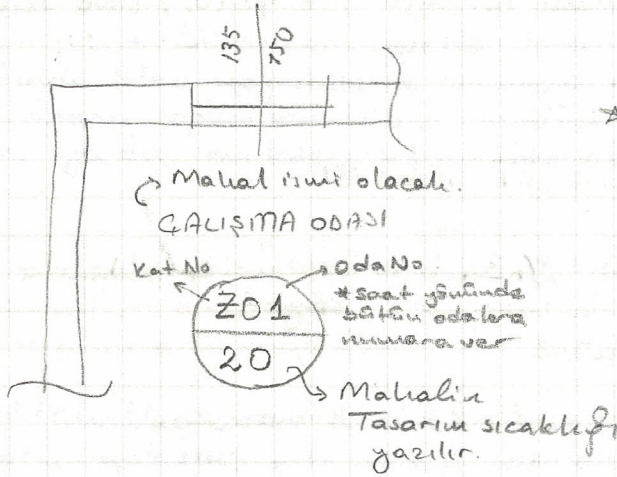 135
150
Mahal ismi olacak.
ÇALIŞMA ODASI
Kat No
Oda No
*saat yönünde
bütün odalara
numara ver
Z01
20
Mahalin
Tasarım sıcaklığı
yazılır.